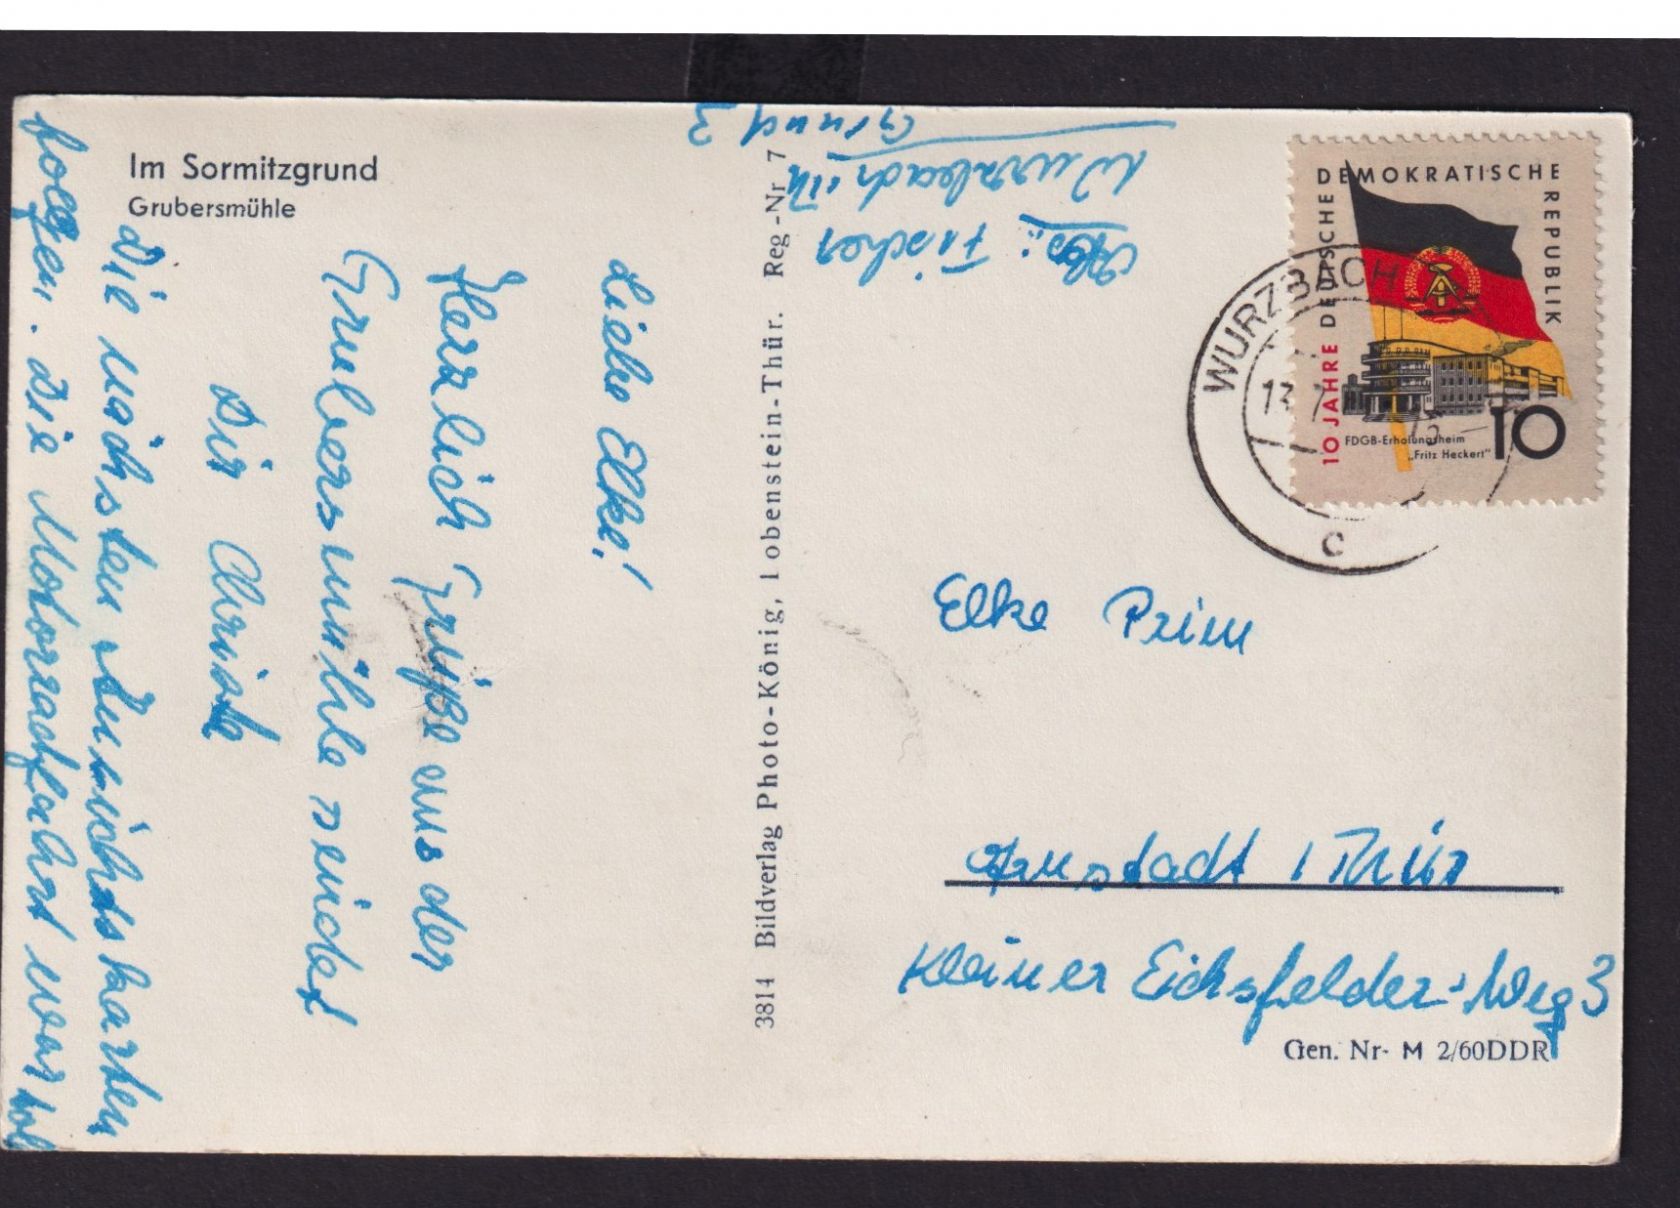 Im Sormitzgrund
Grubersmühle
Liebe Elke!
Herzlich Grüße aus der
Grubersmühle sendet
Dir Christa
Die nächsten Ansichtskarten
folgen. Die Motorradfahrt war toll
3814 Bildverlag Photo-König, Lobenstein-Thür. Reg-Nr 7
Abs.: Fischer
Wurzbach i/Th
Grund 3
10 JAHRE DEUTSCHE DEMOKRATISCHE REPUBLIK
FDGB-Erholungsheim
„Fritz Heckert"
10
WURZBACH
13.7
c
Elke Prim
Arnstadt / Thür
Kleiner Eichsfelder-Weg 3
Gen. Nr- M 2/60DDR